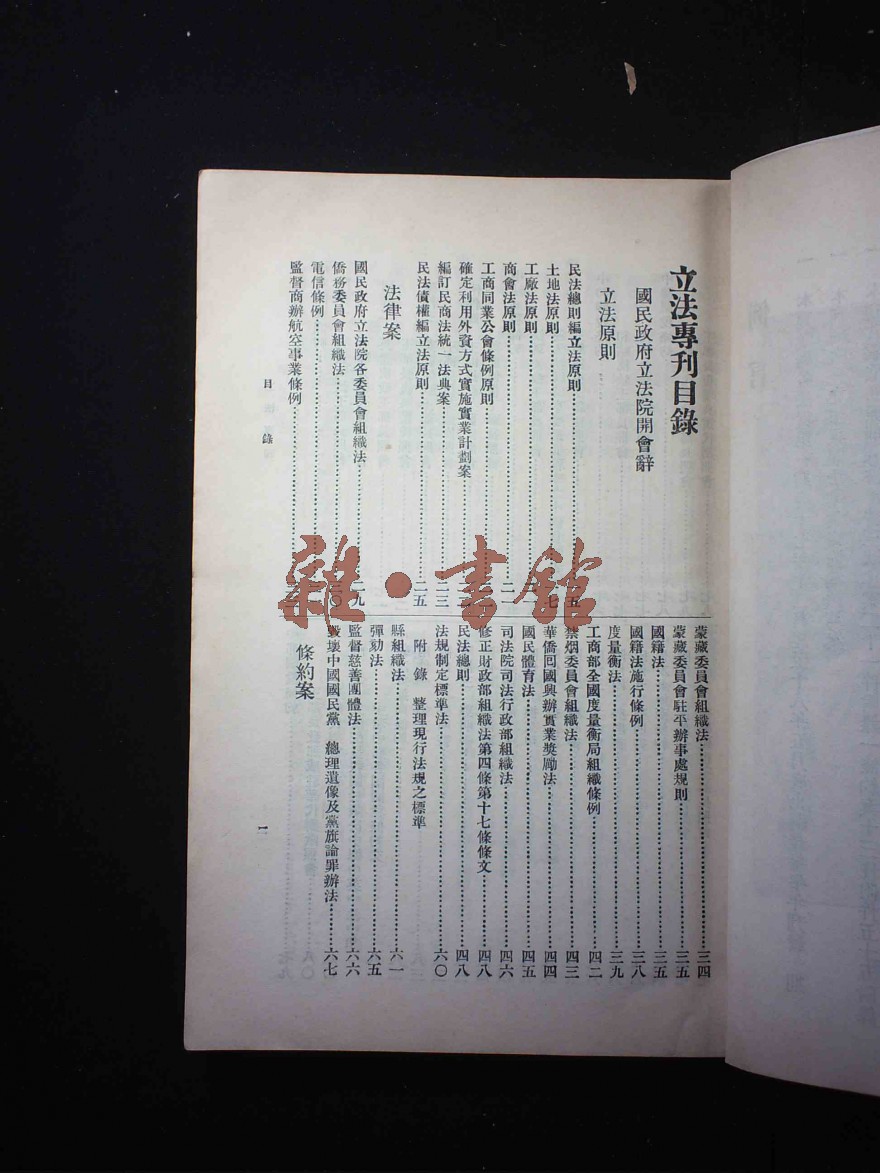 立法專刊目錄
國民政府立法院開會辭
立法原則
民法總則編立法原則……五
土地法原則……七
工廠法原則……
商會法原則……二一
工商同業公會條例原則……
確定利用外資方式實施實業計劃案……
編訂民商法統一法典案……二三
民法債權編立法原則……二五
法律案
國民政府立法院各委員會組織法……二九
僑務委員會組織法……三〇
電信條例……
監督商辦航空事業條例……
蒙藏委員會組織法……三四
蒙藏委員會駐平辦事處規則……三五
國籍法……三五
國籍法施行條例……三八
度量衡法……三九
工商部全國度量衡局組織條例……四二
禁烟委員會組織法……四三
華僑囘國興辦實業獎勵法……四四
國民體育法……四五
司法院司法行政部組織法……四六
修正財政部組織法第四條第十七條條文……四八
民法總則……四八
法規制定標準法……六〇
附錄 整理現行法規之標準
縣組織法……六一
彈劾法……六五
監督慈善團體法……六六
毀壞中國國民黨 總理遺像及黨旗論罪辦法……六七
條約案
目錄
一
雜·書館